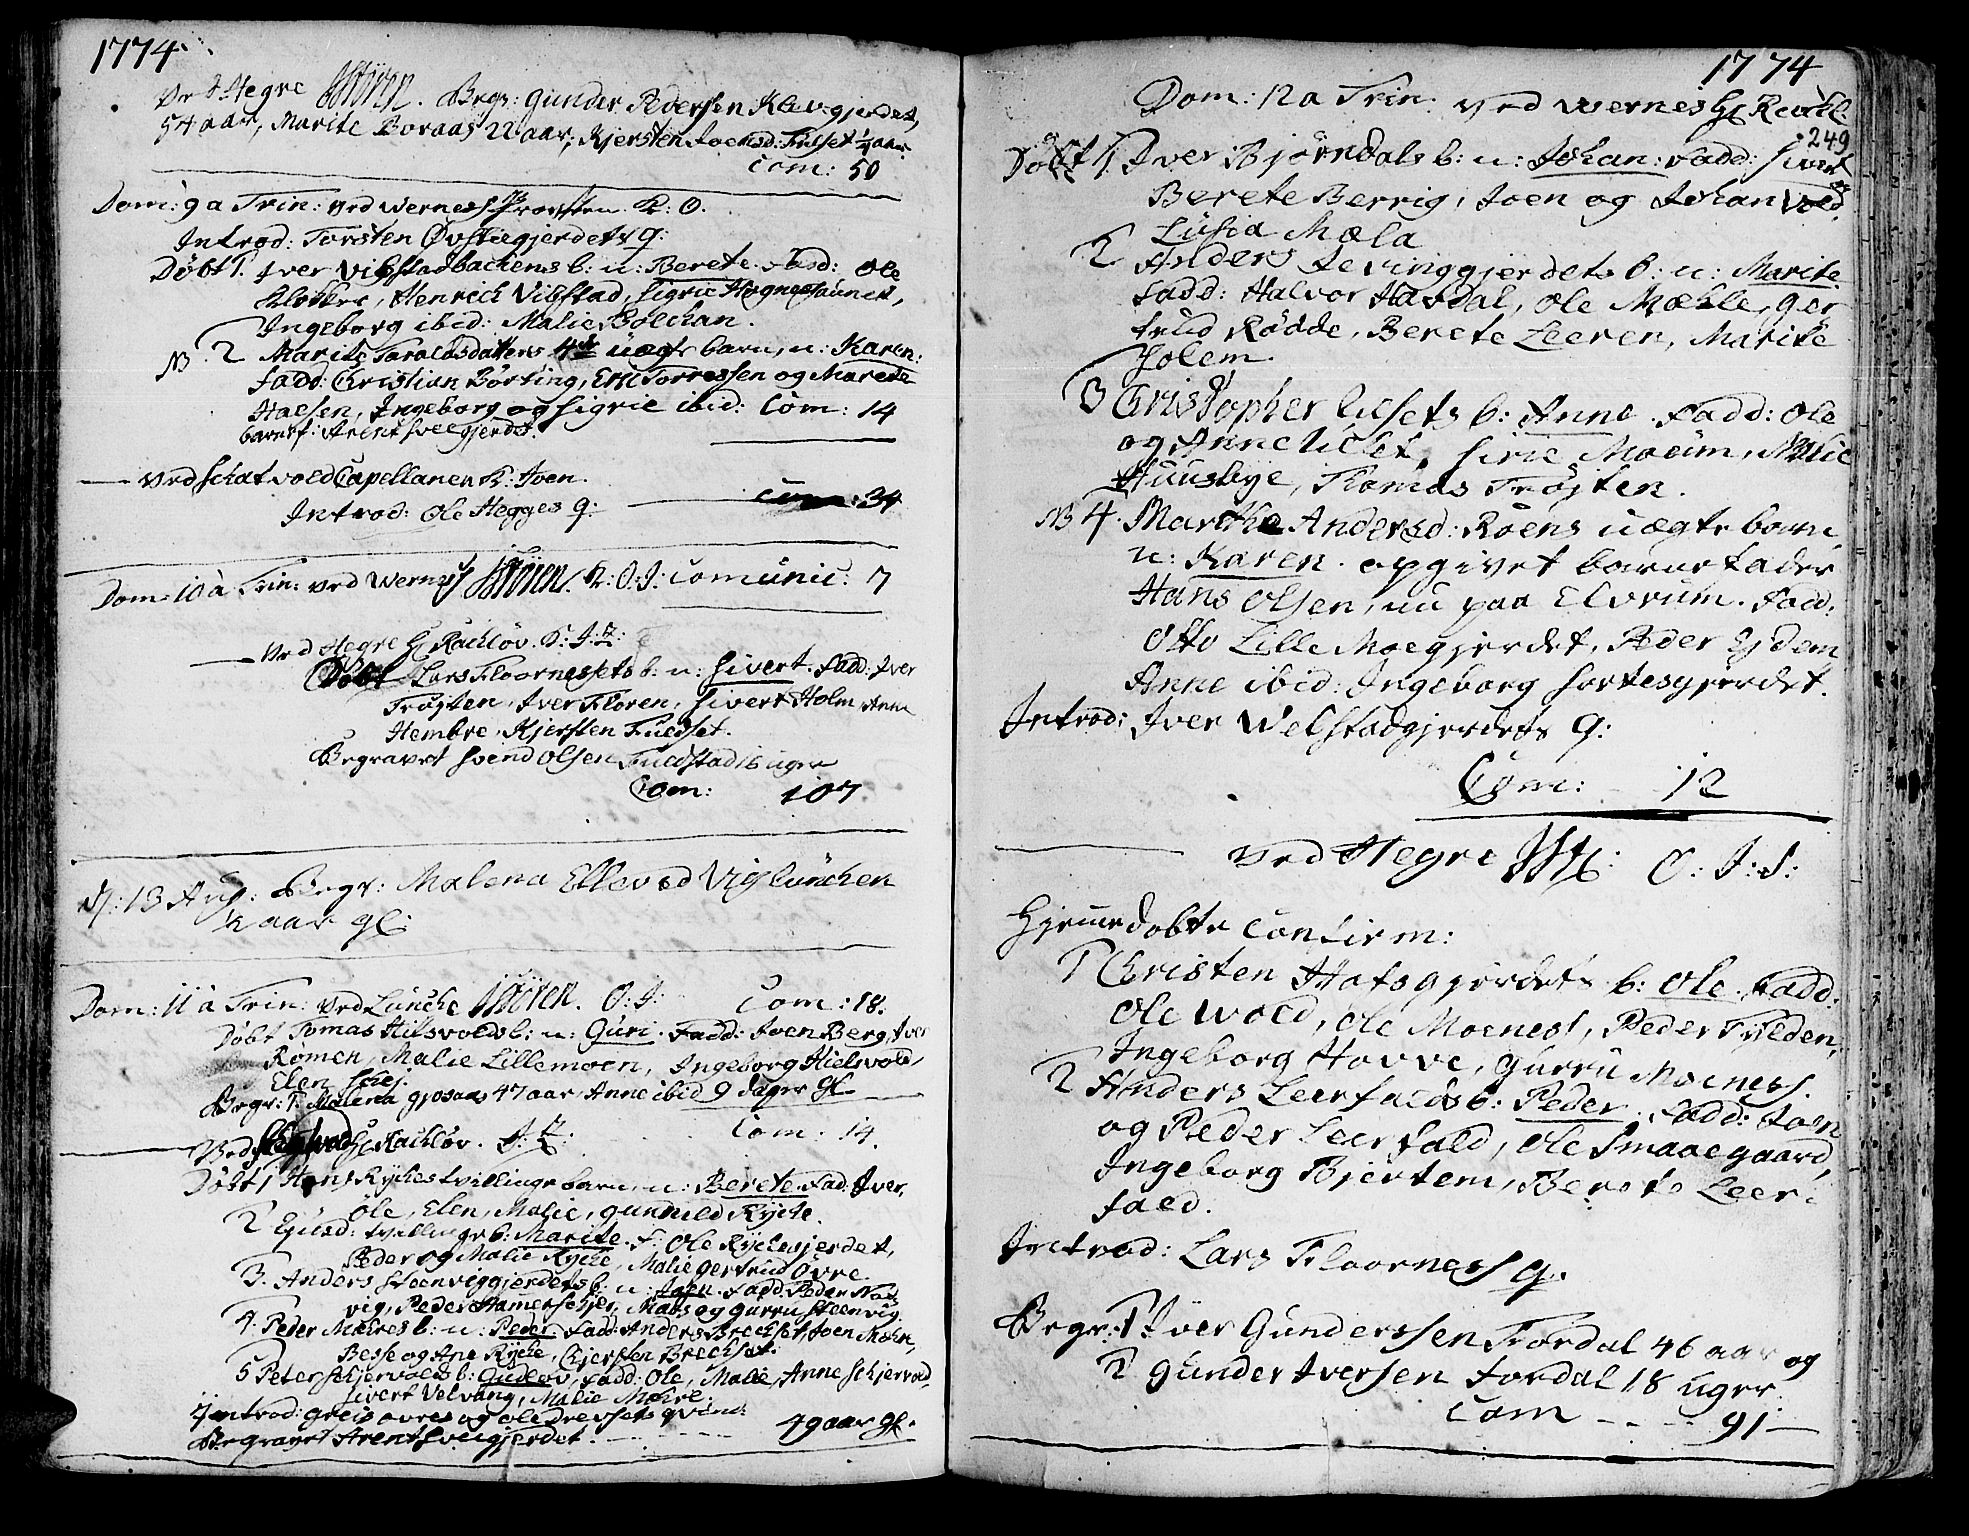 1774
Ved Hegre HStören. Begr: Gunder Pedersen Klevgjerdet,
54 aar, Marite Boraas 22 aar, Kjersten Joensd: Fulset ¼ aar.
Com: 50
Dom: 9 a Trin: ved Wernes Provsten. K: O.
Introd: Torsten Øvstiegjerdets q:
Døbt 1. Iver Vibstadbachens b: n: Berete. Fad: Ole
Klokker, Henrich Vibstad, Sigrie Hognessaunet,
Ingeborg ibid: Malie Bolckan.
NB. 2 Marite Taraldsdatters 4de uægte barn, n: Karen.
Fadd: Christian Börting, Eric Torressen og Marete
Halsen, Ingeborg og Sigrie ibid: Com: 14
barnef: Arent Sveegjerdet.
Ved Schatvold Capellanen K: Joen.
Introd: Ole Hegges q: Com: 34
Dom: 10 a Trin: ved Wernes HStören. K: O: J: Comunic: 7
Ved Hegre H Rachløv. K: J:
Döbt Lars Floornessets b: n: Sivert. Fadd: Iver
Tröjten, Iver Floren, Sivert Holm, Anne
Hembre, Kjersten Fuldset.
Begravet Svend Olsen Fuldstad 16 uger
Com: 107
D: 13 Aug: Begr: Malena Ellevsd Viglunchen
½ aar gl:
Dom: 11 a Trin: ved Lunche HStören. O: J: Com: 18.
Døbt Tomas Hilsvolds b: n: Guri. Fadd: Joen Berg, Iver
Römen, Malie Lillemoen, Ingeborg Hielsvold,
Elen Schej.
Begr: 1. Malena Gjosaas 47 aar, Anne ibid 9 dager gl.
Ved Schatvold H Rachlöv. Com: 14.
Döbt 1 Hans Ryckes tvillinge barn, n: Berete. Fad: Iver,
Ole, Elen, Malie, Gunnild Rycke.
2 Ejusd: tvillinge b: Marite. F: Ole Ryckegjerdet,
Peder og Malie Rycke, Malie Gertrud Övre.
3. Anders Steenviggjerdets b: n: Joen. Fadd: Peder
vig, Peder Hamerschjer, Mats og Gurru Steenvig.
4. Peder Mæhres b: n: Peder Fadd: Anders Brechset, Joen Mæhre,
Besse og Ane Rycke, Kjersten Brechset.
5 Peter Schjervolds b: Gudlov, Fadd: Ole, Malie, Anne Schjervold,
Sivert Velvang, Malie Mæhre.
Introd: Greis Övres og Ole Drevsets qvind:
Begravet Arent Sveigjerdet. 49 aar gl.
1774
249
Dom: 12 a Trin. ved Wernes H Rachl:
Döbt 1. Iver Björndals b: n: Johan: Fadd: Sivert
Berete Berrig, Joen og Johan Vold
Lusia Mæla
2 Anders Jevinggjerdets b: n: Marite.
Fadd: Halvor Hardal, Ole Mæhle, Ger
trud Rödde, Berete Leeren, Marite
Holem.
3 Christopher Uelsets b: Anne. Fadd: Ole
og Anne Uelset, Sirie Moeum, Malie
Huusbye, Thomas Trøjten.
NB 4. Martha Andersd: Röens uægte barn
n: Karen. opgivet barnefader
Hans Olsen, nu paa Elvrum. Fadd:
Otto Lille Moegjerdet, Peder Ejdem
Anne ibid: Ingeborg Sortesgjerdet.
Introd: Iver Welstadgjerdets q:
Com: 12
Ved Hegre HSt: O: J: S:
Hjemmedøbte Confirm:
1 Christen Hofsgjerdets b: Ole. Fadd:
Ole Wold, Ole Moeness, Peder Fylden,
Ingeborg Hovve, Gurru Moeness.
2 Anders Leerfalds b: Peder. Fadd: Joen
og Peder Leerfald, Ole Smaaegaard,
Ingeborg Bjertem, Berete Leer-
fald.
Introd: Lars Floorness q.
Begr: 1. Iver Gunderssen Fordal 46 aar og
2 Gunder Iversen Fordal 18 uger.
Com - - - 91